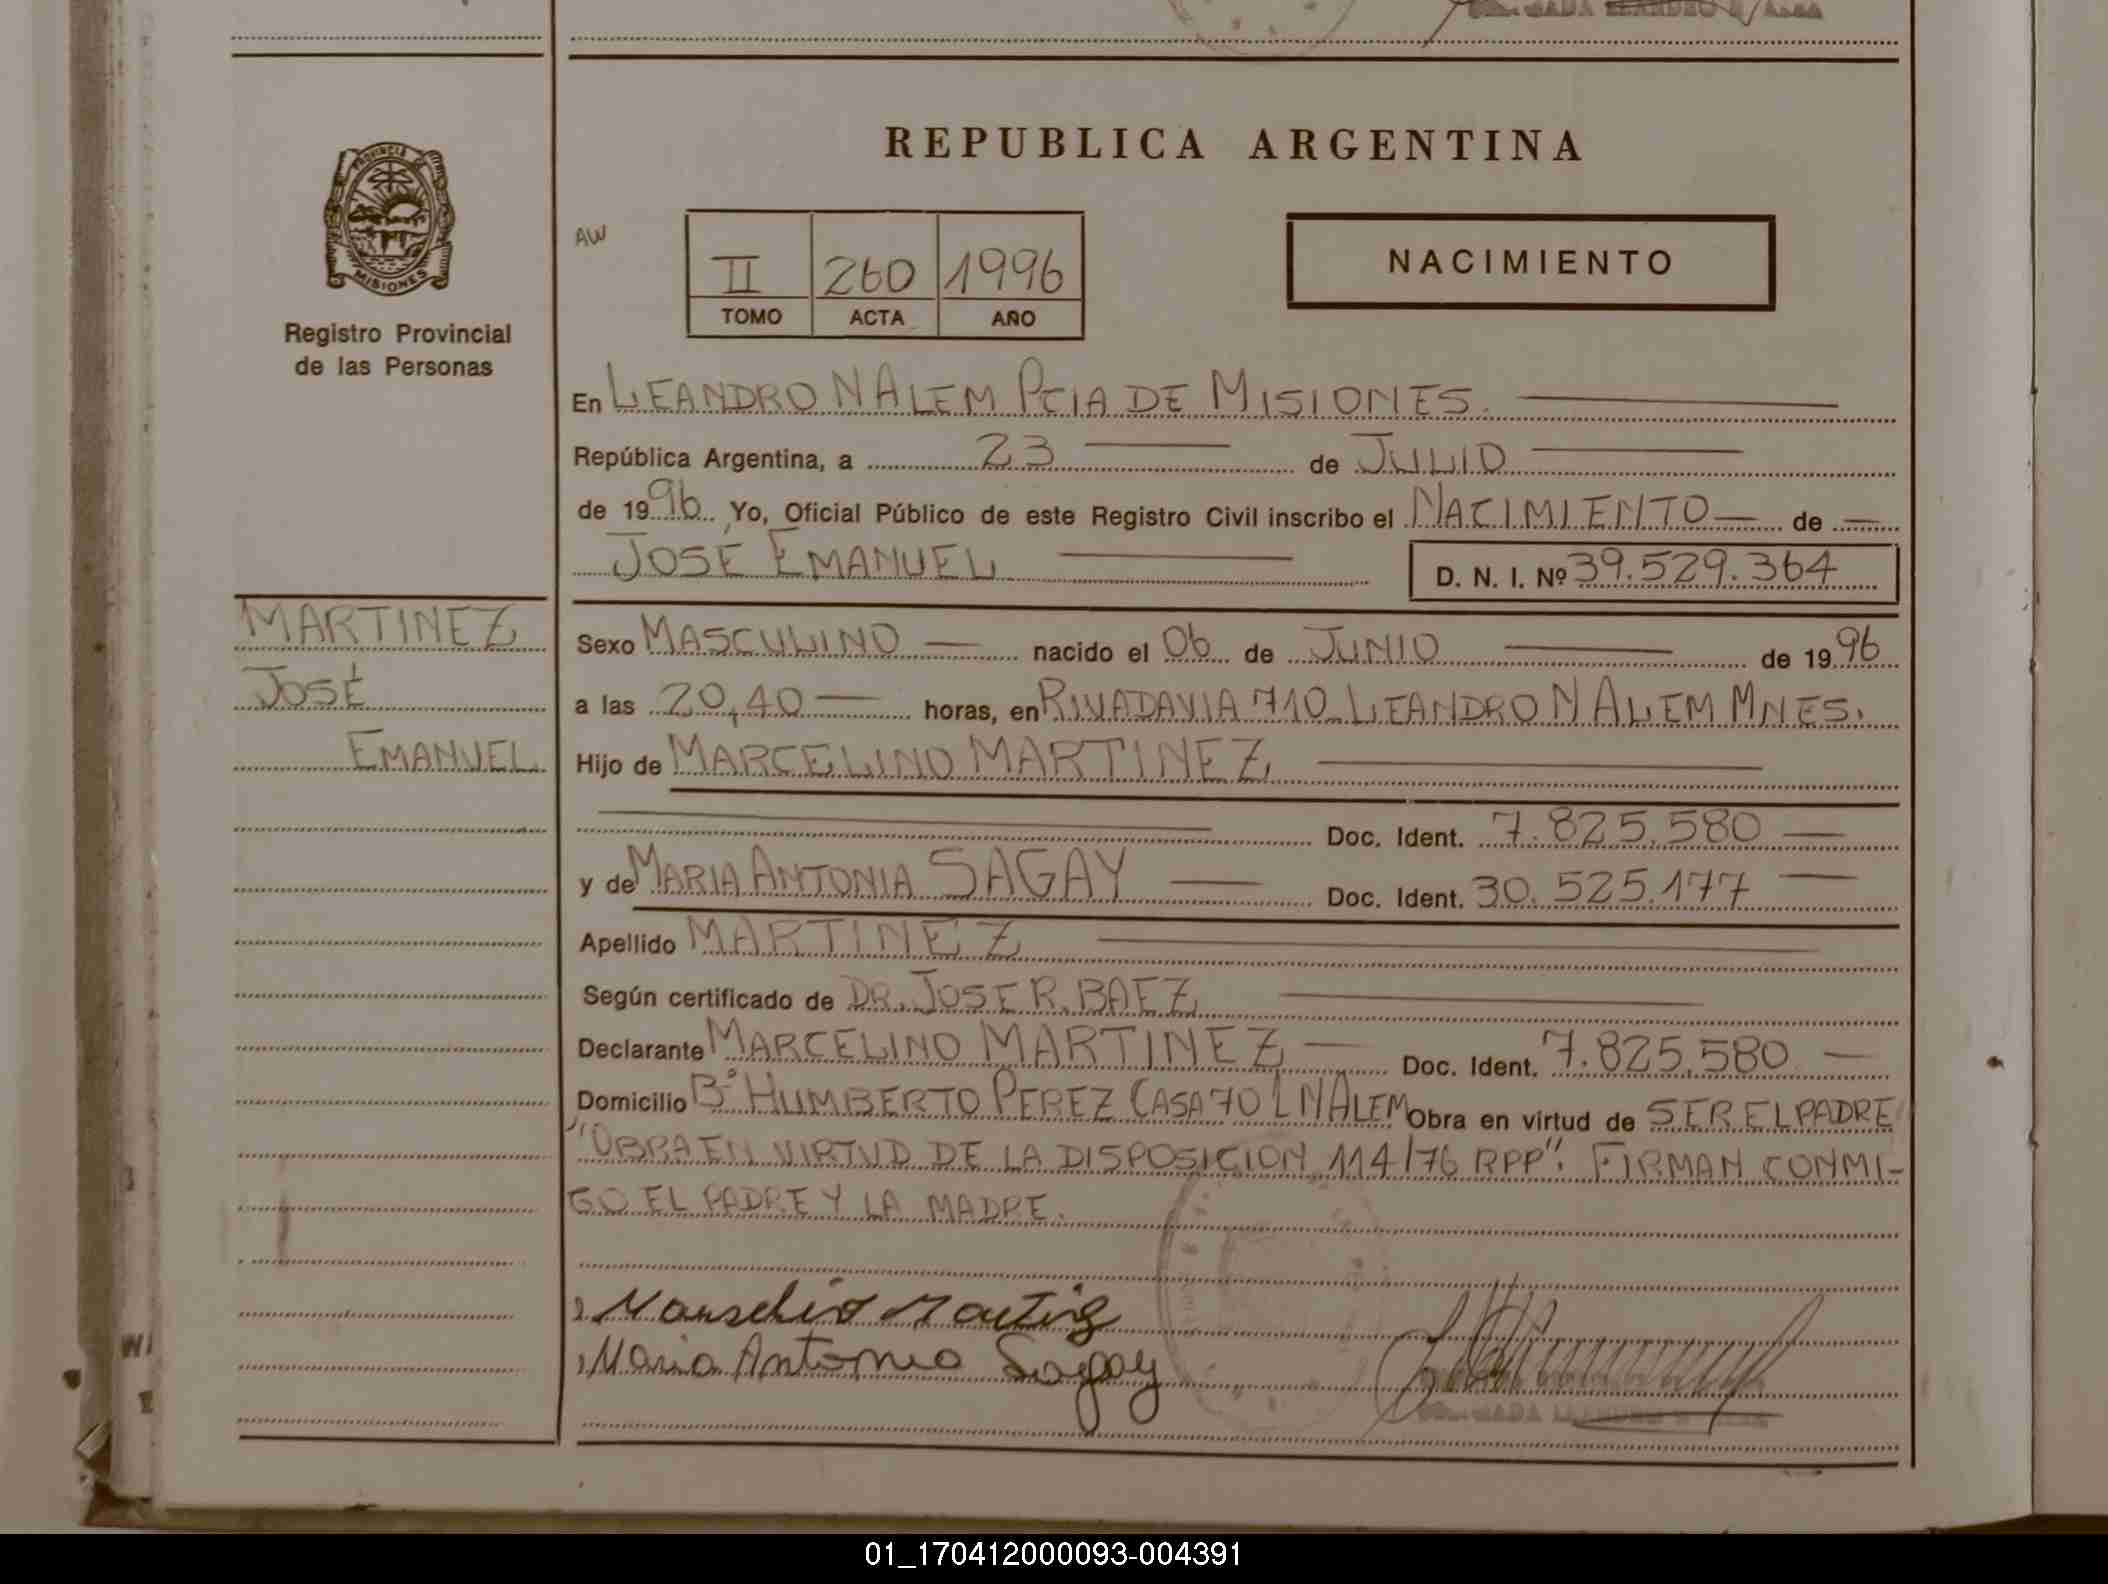 REPUBLICA ARGENTINA
PROVINCIA DE
MISIONES
Registro Provincial
de las Personas
AW
II 260 1996
TOMO ACTA AÑO
NACIMIENTO
En LEANDRO N ALEM PCIA DE MISIONES.
República Argentina, a 23 de JULIO
de 1996 Yo, Oficial Público de este Registro Civil inscribo el NACIMIENTO de
JOSÉ EMANUEL D. N. I. Nº 39.529.364
MARTINEZ
JOSÉ
EMANUEL
Sexo MASCULINO nacido el 06 de JUNIO de 1996
a las 20,40 horas, en RIVADAVIA 710 LEANDRO N ALEM MNES.
Hijo de MARCELINO MARTINEZ
Doc. Ident. 7.825.580
y de MARIA ANTONIA SAGAY Doc. Ident. 30.525.177
Apellido MARTINEZ
Según certificado de DR. JOSE R. BAEZ
Declarante MARCELINO MARTINEZ Doc. Ident. 7.825.580
Domicilio Bº HUMBERTO PEREZ CASA 70 L N ALEM Obra en virtud de SER EL PADRE
"OBRA EN VIRTUD DE LA DISPOSICION 114/76 RPP". FIRMAN CONMI-
GO EL PADRE Y LA MADRE.
Maria Antonia Sagay
01_170412000093-004391